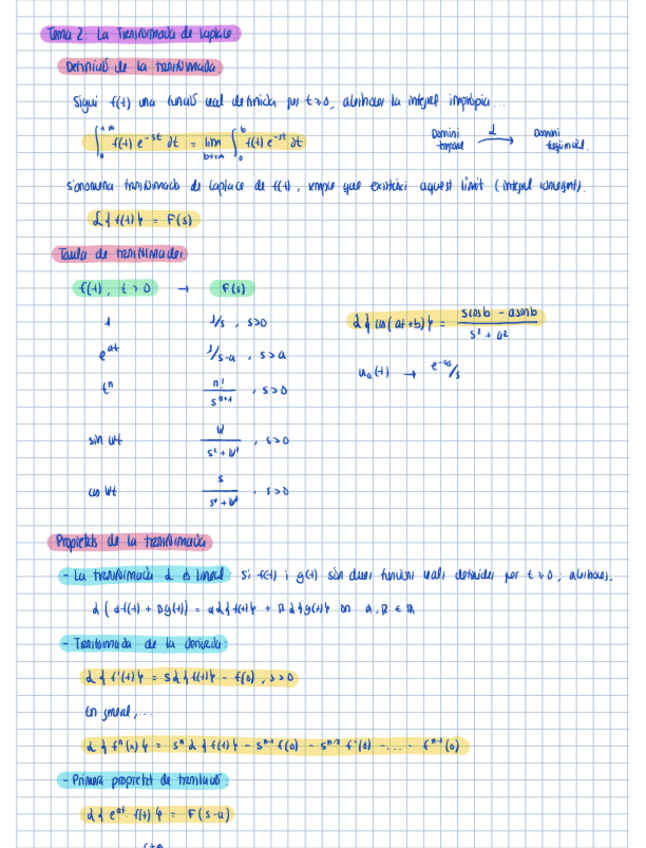 Tema 2: La Transformada de Laplace.
Definició de la transformada.
Sigui f(t) una funció real definida per t≥0, aleshores la integral impròpia...
∫₀^{+∞} f(t) e^{-st} dt = lim_{b→+∞} ∫₀^b f(t) e^{-st} dt
Domini temporal →ℒ Domini freqüencial.
s'anomena transformada de Laplace de f(t), sempre que existeixi aquest límit (integral convergent).
ℒ{f(t)} = F(s)
Taula de transformades
f(t), t>0 → F(s)
1 1/s, s>0
ℒ{cos(at+b)} = (s cos b - a sin b)/(s² + a²)
e^{at} 1/s-a, s>a
u_a(t) → e^{-as}/s
t^n n!/s^{n+1}, s>0
sin wt w/(s² + w²), s>0
cos wt s/(s² + w²), s>0
Propietats de la transformada
- La transformada ℒ és lineal: Si f(t) i g(t) són dues funcions reals definides per t≥0; aleshores.
ℒ(αf(t) + βg(t)) = αℒ{f(t)} + βℒ{g(t)} on α, β ∈ ℝ
- Transformada de la derivada:
ℒ{f'(t)} = sℒ{f(t)} - f(0), s>0
En general,...
ℒ{fⁿ(s)} = sⁿℒ{f(t)} - s^{n-1} f(0) - s^{n-2} f'(0) - ... - f^{n-1}(0)
- Primera propietat de translació:
ℒ{e^{at}·f(t)} = F(s-a)